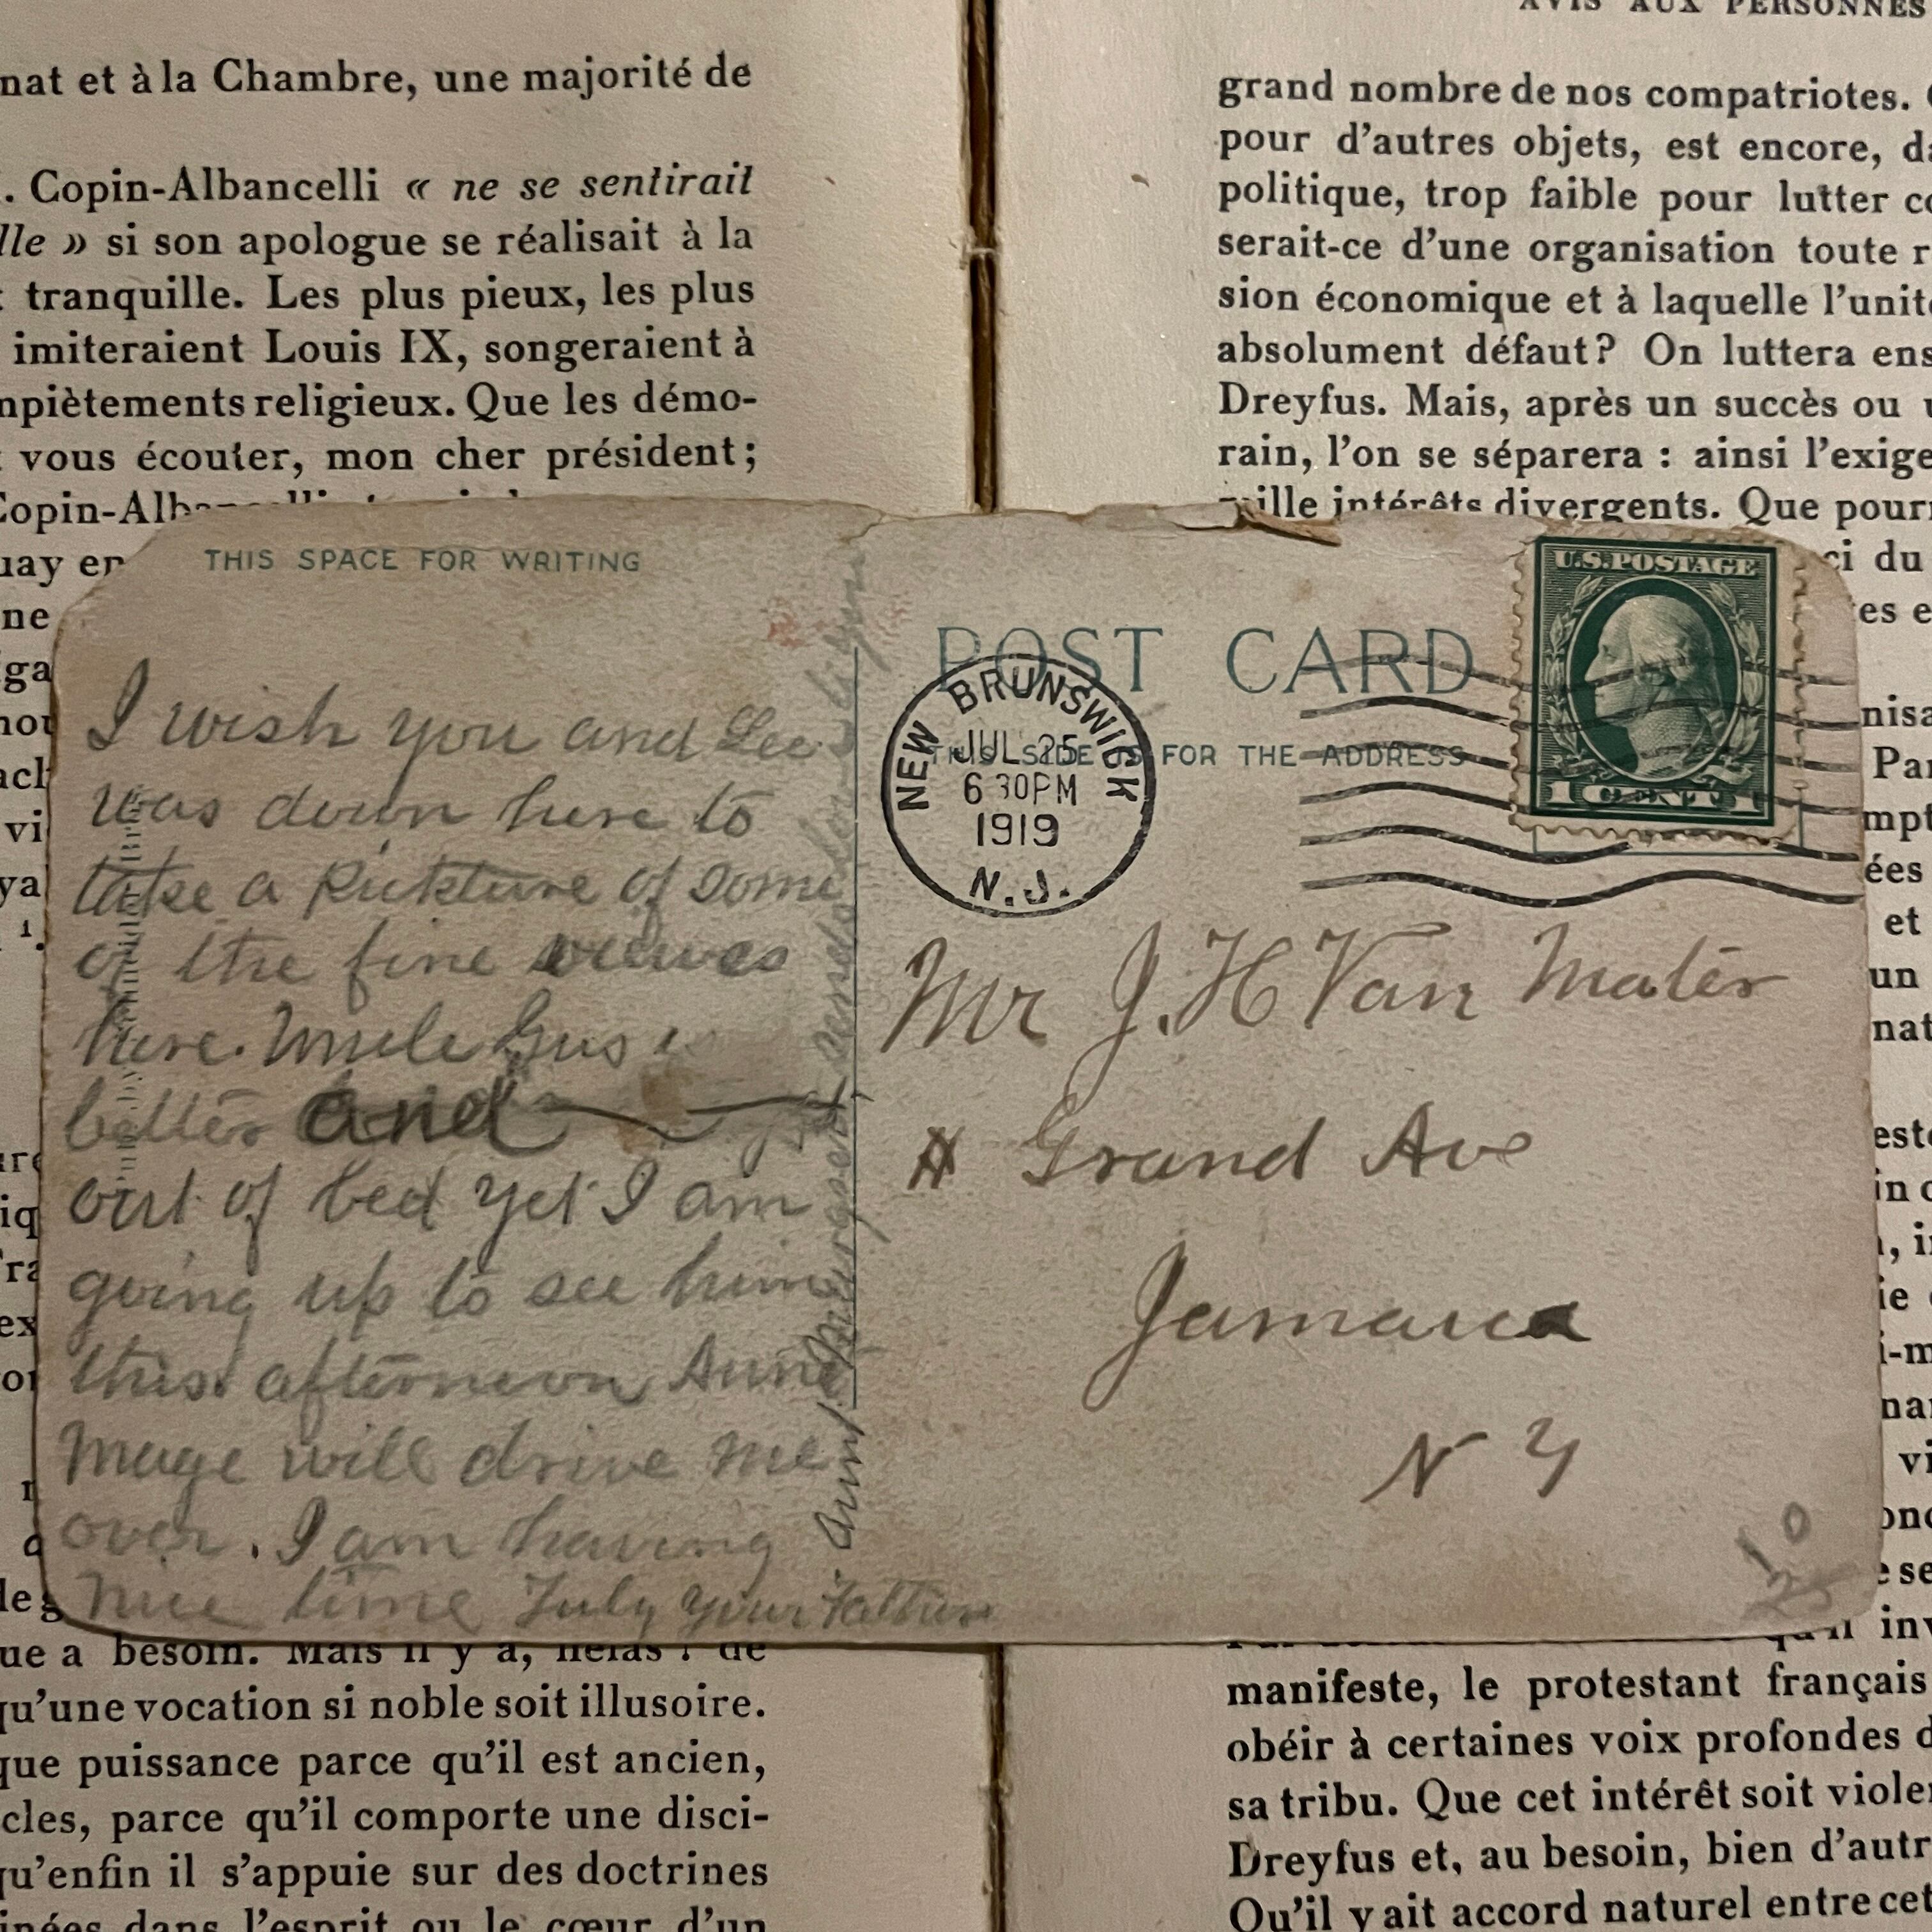 nat et à la Chambre, une majorité de
. Copin-Albancelli « ne se sentirait
lle » si son apologue se réalisait à la
tranquille. Les plus pieux, les plus
imiteraient Louis IX, songeraient à
mpiètements religieux. Que les démo-
vous écouter, mon cher président;
Copin-Alb
uay en
ne
AVIS AUX PERSONNES
grand nombre de nos compatriotes.
pour d'autres objets, est encore, da
politique, trop faible pour lutter co
serait-ce d'une organisation toute r
sion économique et à laquelle l'unité
absolument défaut? On luttera ens
Dreyfus. Mais, après un succès ou u
rain, l'on se séparera : ainsi l'exige
mille intérêts divergents. Que pourr
ci du
es e
THIS SPACE FOR WRITING
I wish you and Lee
was down here to
take a Pickture of some
of the fine viewes
here. Uncle Gus
better and
out of bed yet I am
going up to see him
this afternoon Aunt
Mage will drive me
over. I am having
nice time July your Father
Aunt sends love
POST CARD
THIS SIDE IS FOR THE ADDRESS
NEW BRUNSWICK
JUL 25
6 30PM
1919
N.J.
U.S. POSTAGE
1 CENT 1
Mr J. H Van Mater
Grand Ave
Jamaica
N Y
10
25
que a besoin. Mais il y a, hélas! de
qu'une vocation si noble soit illusoire.
que puissance parce qu'il est ancien,
cles, parce qu'il comporte une disci-
qu'enfin il s'appuie sur des doctrines
inées dans l'esprit ou le cœur d'un
manifeste, le protestant français
obéir à certaines voix profondes d
sa tribu. Que cet intérêt soit violen
Dreyfus et, au besoin, bien d'autr
Qu'il y ait accord naturel entre cet